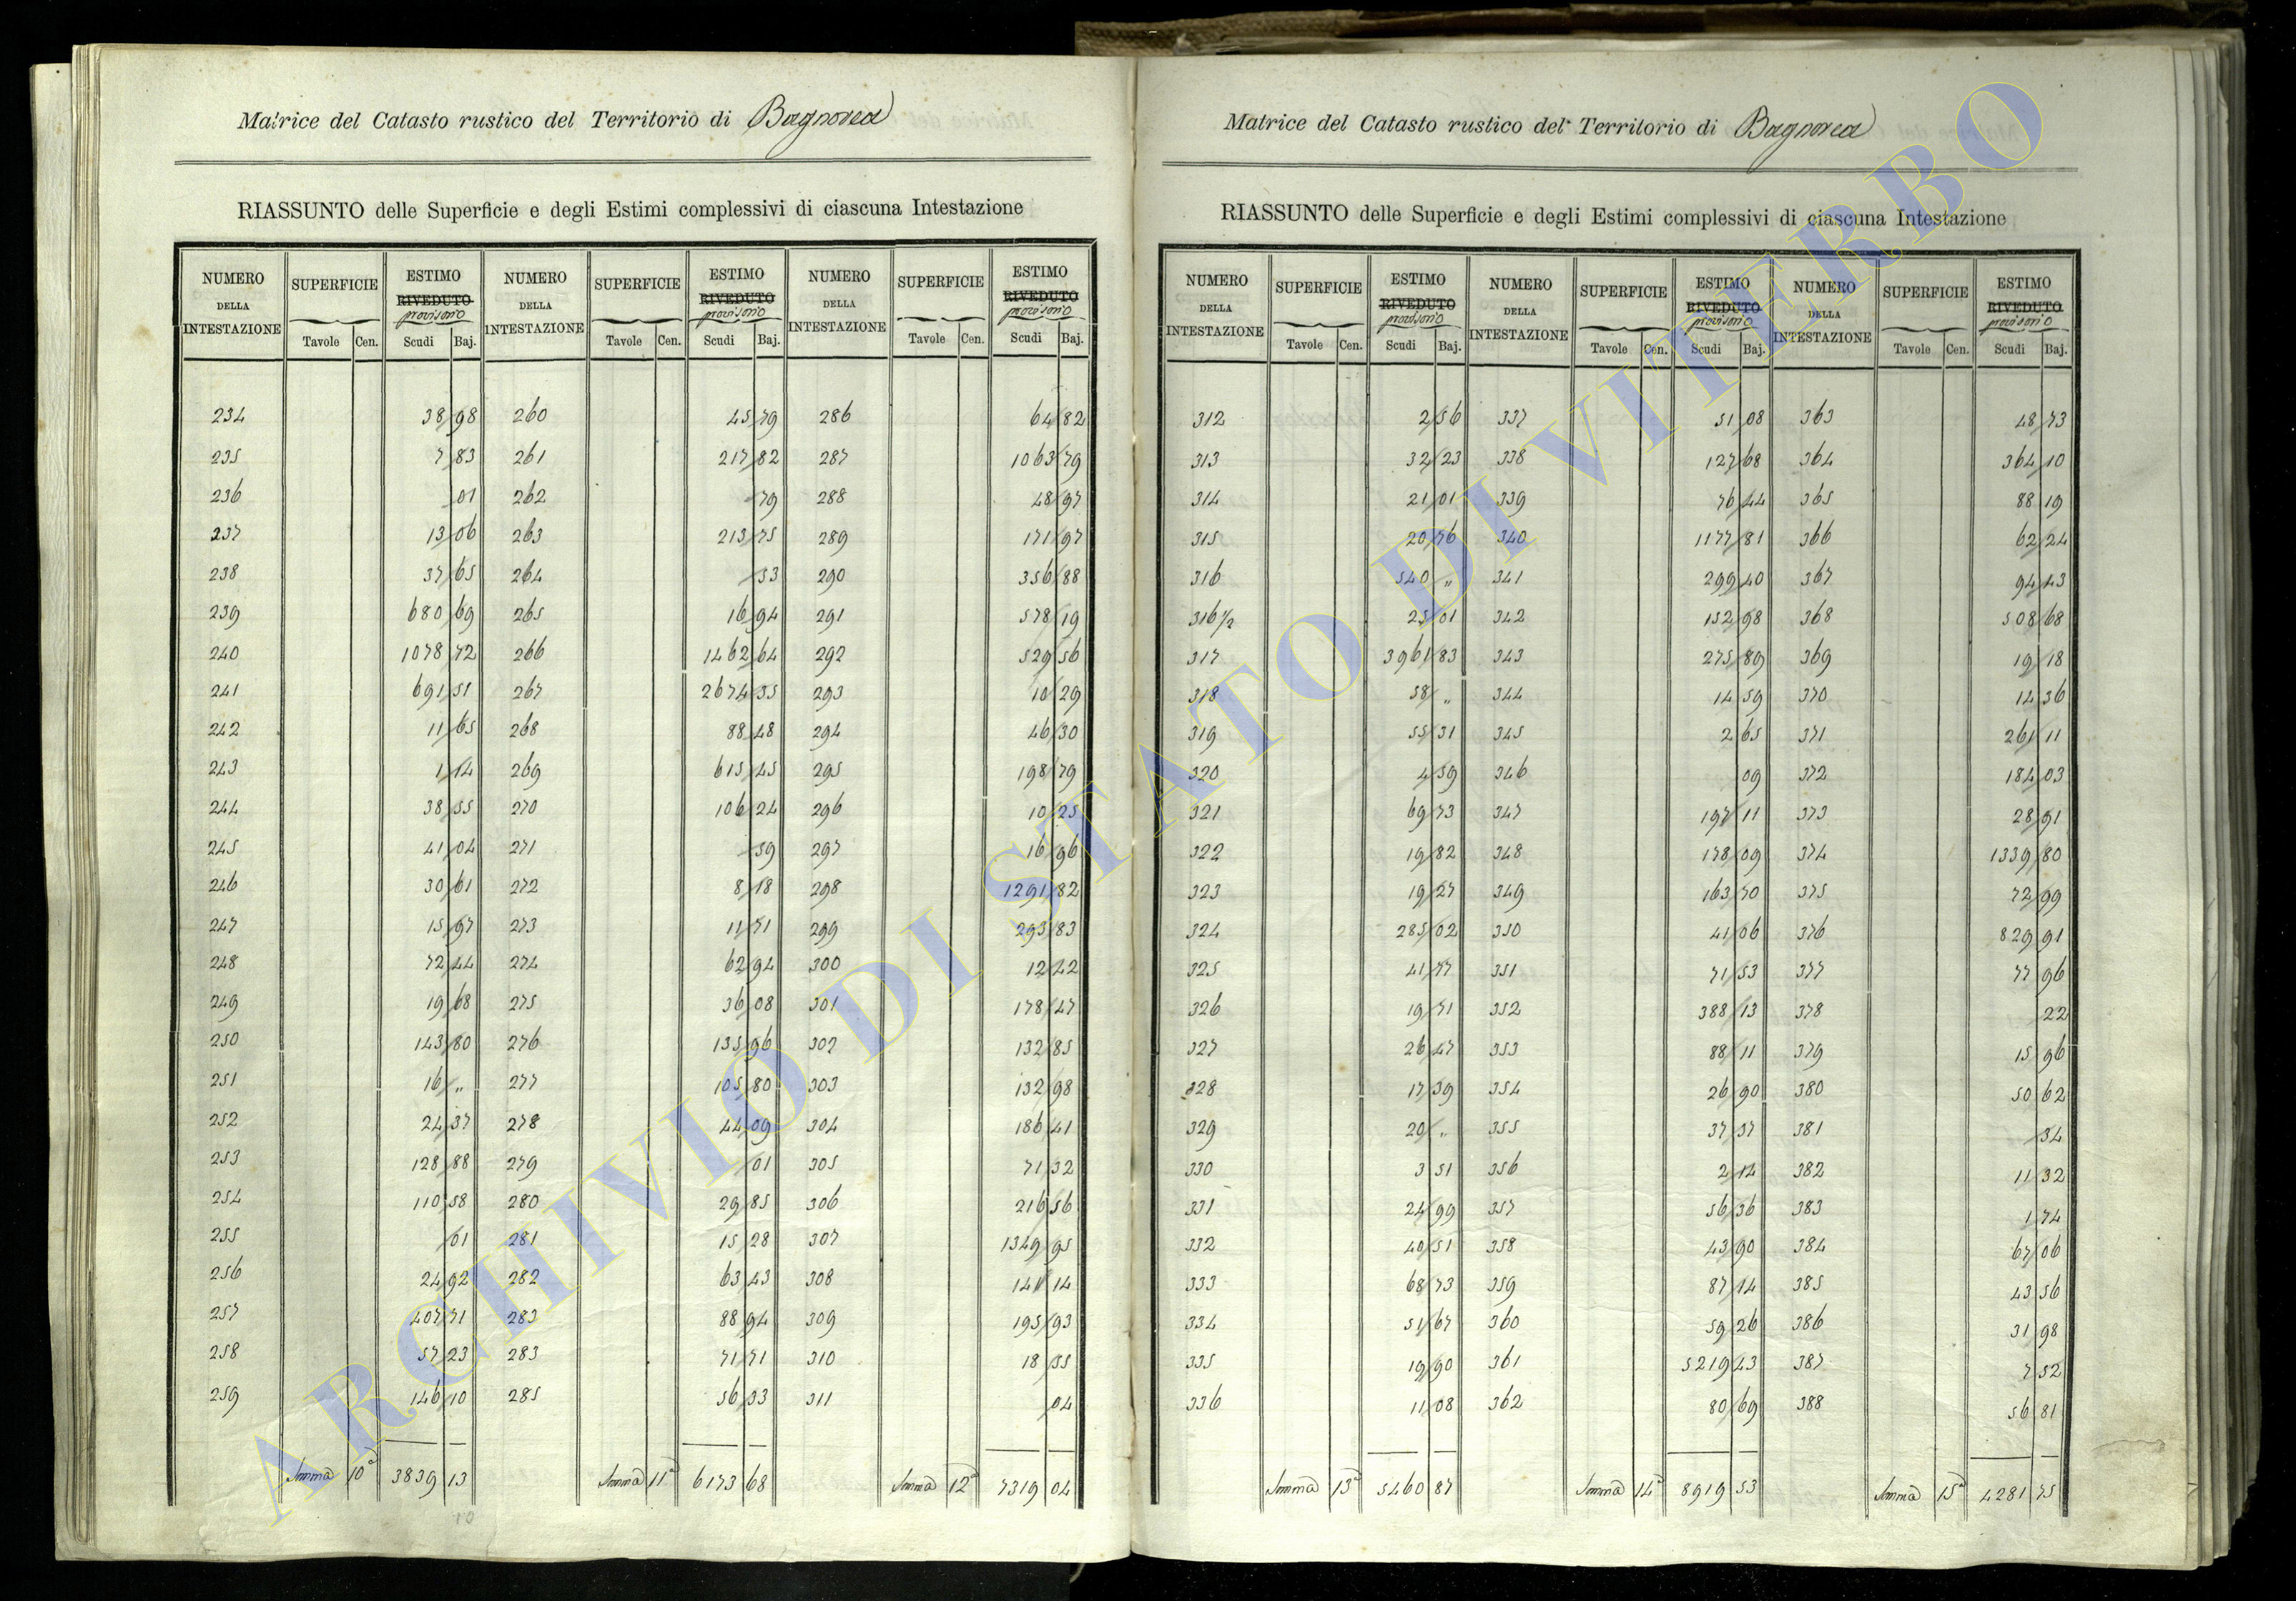 Matrice del Catasto rustico del Territorio di Bagnorea
RIASSUNTO delle Superficie e degli Estimi complessivi di ciascuna Intestazione
NUMERO DELLA INTESTAZIONE SUPERFICIE Tavole Cen. ESTIMO RIVEDUTO provisorio Scudi Baj. NUMERO DELLA INTESTAZIONE SUPERFICIE Tavole Cen. ESTIMO RIVEDUTO provisorio Scudi Baj. NUMERO DELLA INTESTAZIONE SUPERFICIE Tavole Cen. ESTIMO RIVEDUTO provisorio Scudi Baj.
234 38 98 260 45 79 286 64 82
235 7 83 261 217 82 287 1063 79
236 01 262 79 288 48 97
237 13 06 263 213 75 289 171 97
238 37 65 264 53 290 356 88
239 680 69 265 16 94 291 578 19
240 1078 72 266 1462 64 292 529 56
241 691 51 267 2674 35 293 10 29
242 11 65 268 88 48 294 46 30
243 1 14 269 615 45 295 198 79
244 38 55 270 106 24 296 10 25
245 41 04 271 59 297 16 96
246 30 61 272 8 18 298 1291 82
247 15 97 273 11 71 299 293 83
248 72 44 274 62 94 300 12 42
249 19 68 275 36 08 301 178 47
250 143 80 276 135 96 302 132 85
251 16 " 277 105 80 303 132 98
252 24 37 278 44 09 304 186 41
253 128 88 279 01 305 71 32
254 110 58 280 29 85 306 216 56
255 01 281 15 28 307 1349 95
256 24 92 282 63 43 308 141 14
257 407 71 283 88 94 309 195 93
258 57 23 283 71 71 310 18 55
259 146 10 285 56 33 311 04
Somma 10a 3839 13 Somma 11a 6173 68 Somma 12a 7319 04
10
Matrice del Catasto rustico del Territorio di Bagnorea
RIASSUNTO delle Superficie e degli Estimi complessivi di ciascuna Intestazione
NUMERO DELLA INTESTAZIONE SUPERFICIE Tavole Cen. ESTIMO RIVEDUTO provisorio Scudi Baj. NUMERO DELLA INTESTAZIONE SUPERFICIE Tavole Cen. ESTIMO RIVEDUTO provisorio Scudi Baj. NUMERO DELLA INTESTAZIONE SUPERFICIE Tavole Cen. ESTIMO RIVEDUTO provisorio Scudi Baj.
312 2 56 337 51 08 363 48 73
313 32 23 338 127 68 364 364 10
314 21 01 339 76 44 365 88 19
315 20 76 340 1177 81 366 62 24
316 540 " 341 299 40 367 94 43
316 1/2 25 01 342 152 98 368 508 68
317 3961 83 343 275 89 369 19 18
318 58 " 344 14 59 370 14 36
319 55 31 345 2 65 371 261 11
320 4 59 346 09 372 184 03
321 69 73 347 197 11 373 28 91
322 19 82 348 178 09 374 1339 80
323 19 27 349 163 70 375 72 99
324 285 02 350 41 06 376 829 91
325 41 77 351 71 53 377 77 96
326 19 71 352 388 13 378 22
327 26 47 353 88 11 379 15 96
328 17 39 354 26 90 380 50 62
329 20 " 355 37 37 381 34
330 3 51 356 2 14 382 11 32
331 24 99 357 56 36 383 1 74
332 40 51 358 43 90 384 67 06
333 68 73 359 87 14 385 43 56
334 51 67 360 59 26 386 31 98
335 19 90 361 5219 43 387 7 52
336 11 08 362 80 69 388 56 81
Somma 13a 5460 87 Somma 14a 8919 53 Somma 15a 4281 75
ARCHIVIO DI STATO DI VITERBO